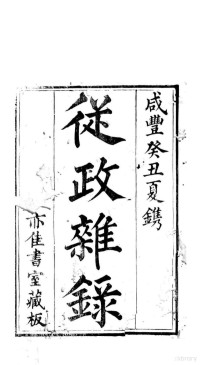 咸豐癸丑夏鐫
從政雜錄
亦佳書室藏板